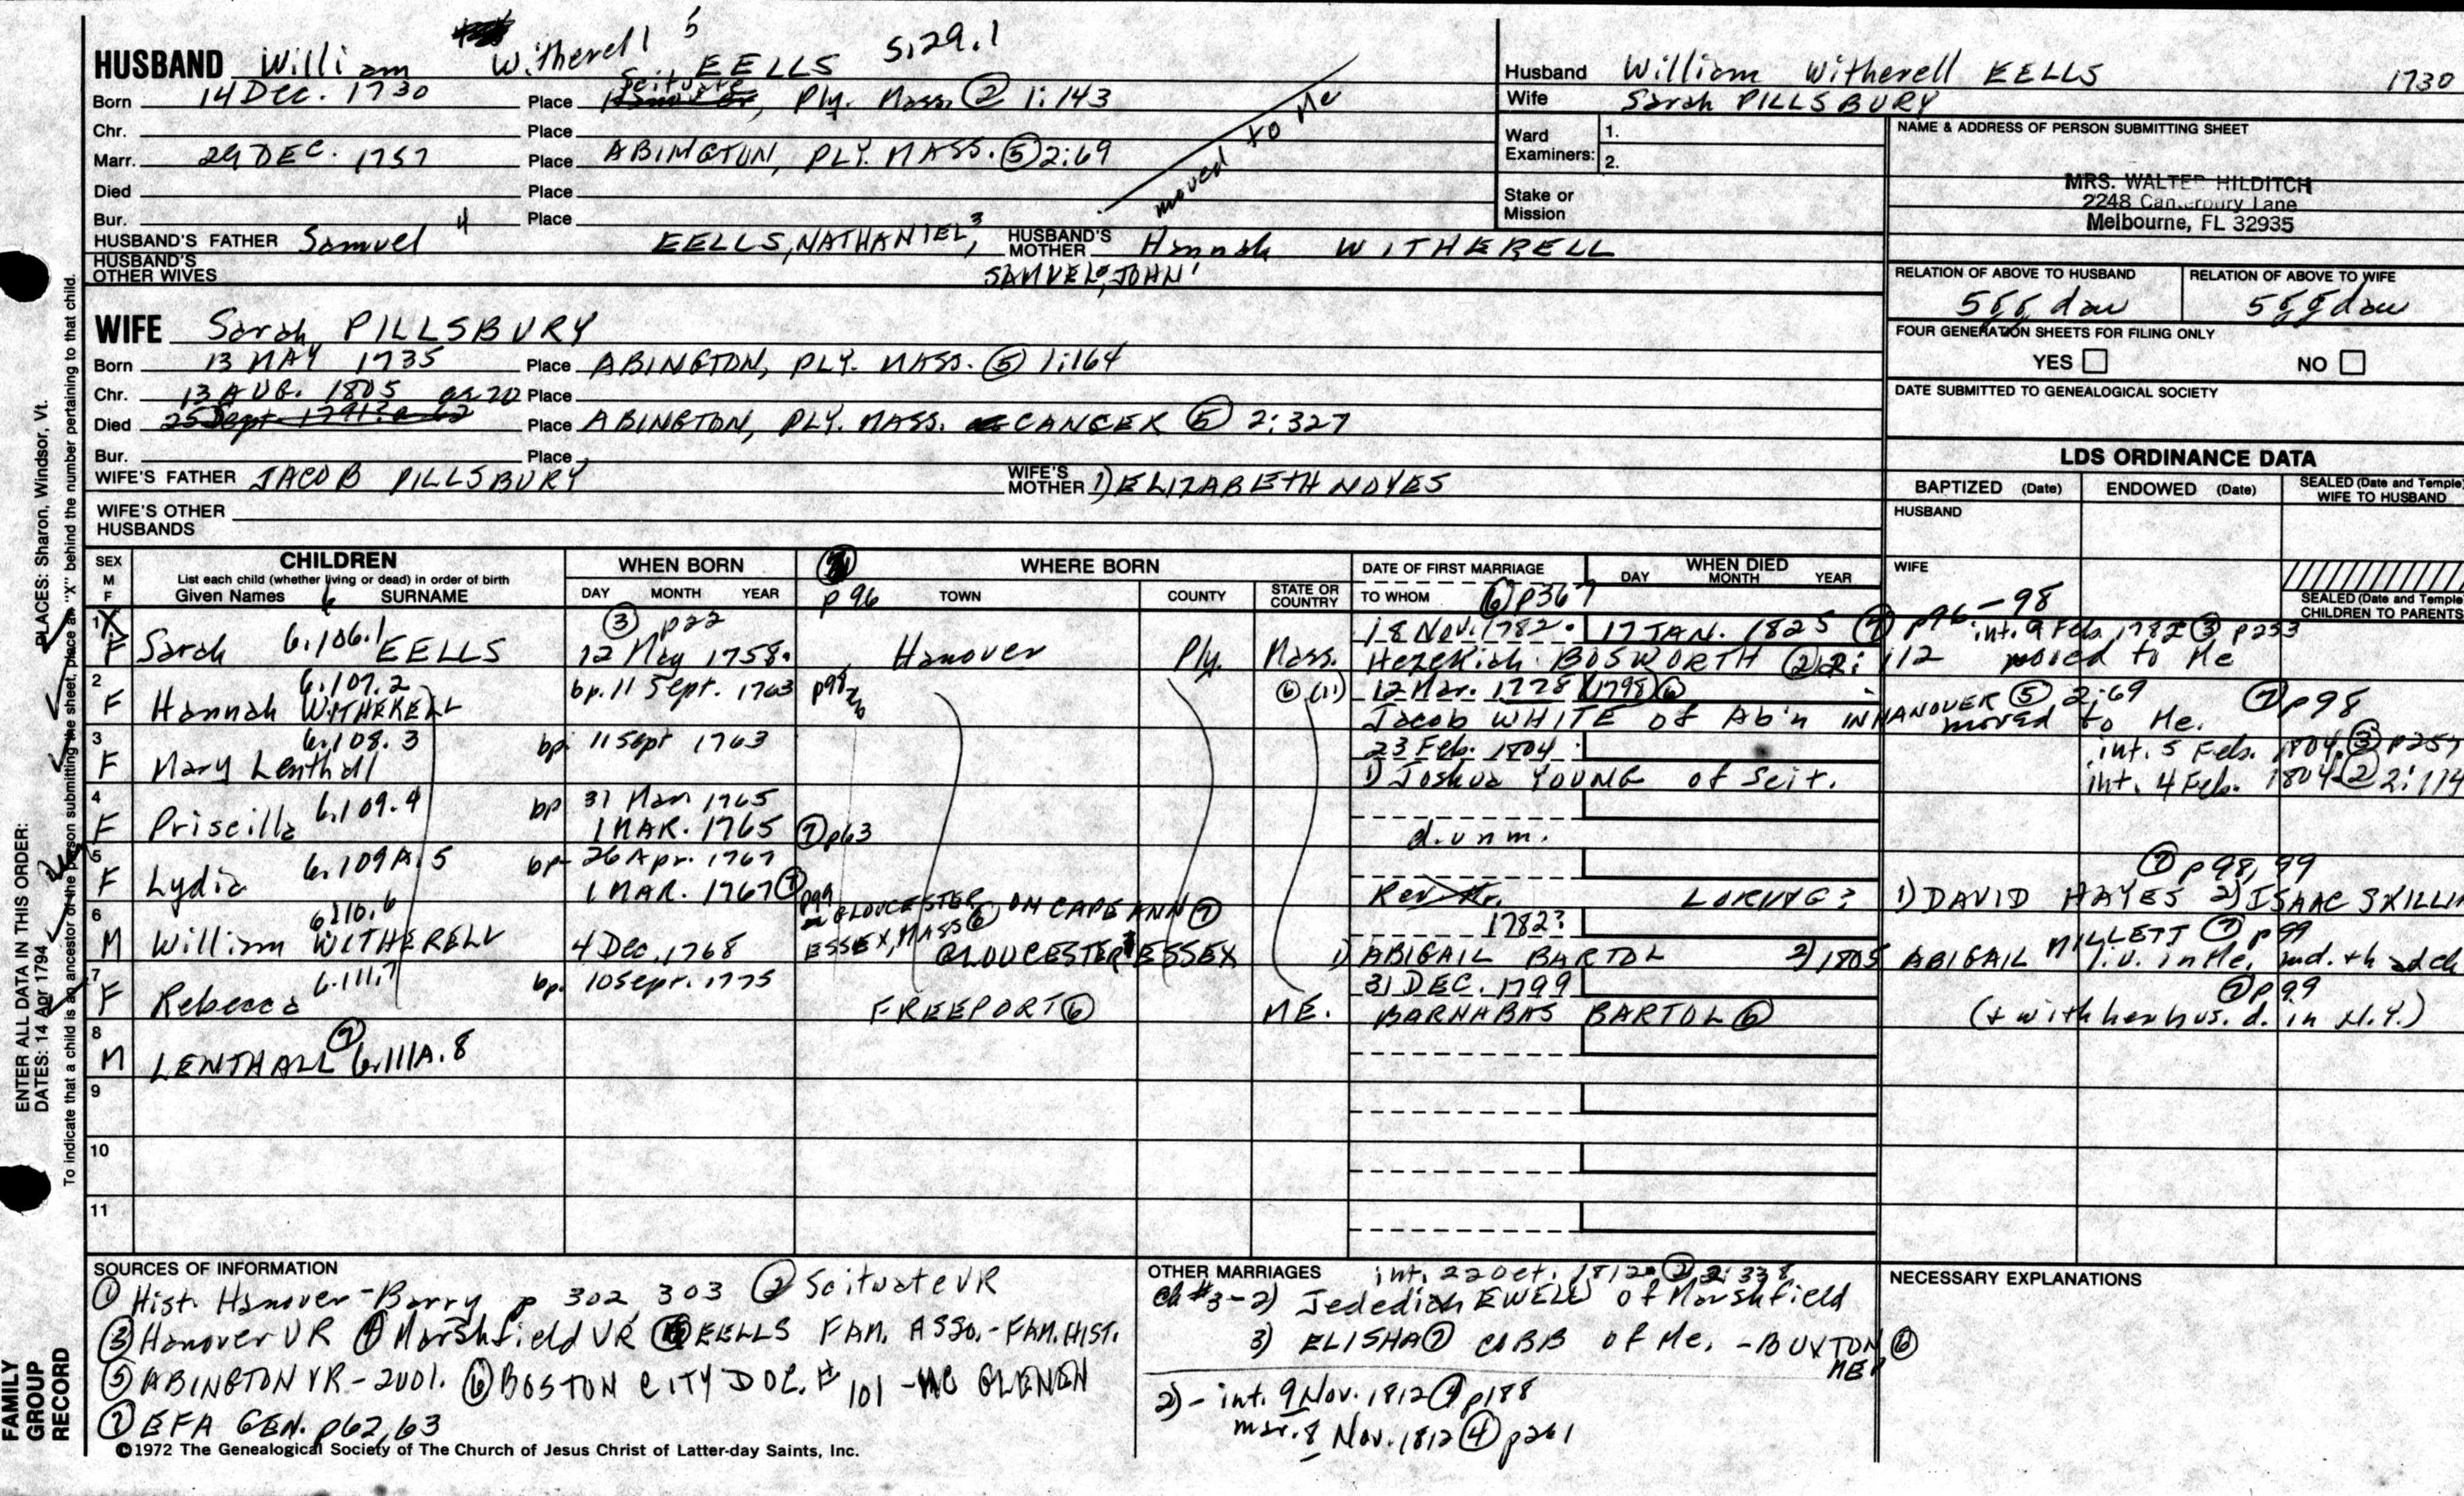 HUSBAND William Witherell 5 EELLS 5.29.1
Born 14 Dec. 1730 Place Scituate, Ply. Mass. ② 1:143
Chr. Place
Marr. 29 DEC. 1757 Place ABINGTON, PLY. MASS. ⑤ 2:69
Died Place
Bur. Place
moved to Me
HUSBAND'S FATHER Samuel 4 EELLS, NATHANIEL 3, HUSBAND'S MOTHER Hannah WITHERELL
HUSBAND'S OTHER WIVES SAMUEL 2, JOHN 1
Husband William Witherell EELLS 1730
Wife Sarah PILLSBURY
Ward Examiners: 1.
2.
Stake or Mission
NAME & ADDRESS OF PERSON SUBMITTING SHEET
MRS. WALTER HILDITCH
2248 Canterbury Lane
Melbourne, FL 32935
RELATION OF ABOVE TO HUSBAND RELATION OF ABOVE TO WIFE
5 g g dau 5 g g dau
FOUR GENERATION SHEETS FOR FILING ONLY
YES NO
DATE SUBMITTED TO GENEALOGICAL SOCIETY
WIFE Sarah PILLSBURY
Born 13 MAY 1735 Place ABINGTON, PLY. MASS. ⑤ 1:164
Chr. 13 AUG. 1805 ae 70 Place
Died 25 Sept 1791 Place ABINGTON, PLY. MASS. CANCER ⑤ 2:327
Bur. Place
WIFE'S FATHER JACOB PILLSBURY WIFE'S MOTHER 1) ELIZABETH NOYES
WIFE'S OTHER HUSBANDS
LDS ORDINANCE DATA
BAPTIZED (Date) ENDOWED (Date) SEALED (Date and Temple) WIFE TO HUSBAND
HUSBAND
WIFE
SEALED (Date and Temple) CHILDREN TO PARENTS
SEX M F CHILDREN
List each child (whether living or dead) in order of birth
Given Names 6 SURNAME
WHEN BORN DAY MONTH YEAR
p 96 WHERE BORN TOWN COUNTY STATE OR COUNTRY
DATE OF FIRST MARRIAGE TO WHOM ⑥ p367
WHEN DIED DAY MONTH YEAR
③ p22
1 X 18 Nov. 1782. 17 JAN. 1825 ⑦ p96-98 int. 9 Feb. 1782 ③ p253
F Sarah 6.106.1 EELLS 12 May 1758. Hanover Ply. Mass. Hezekiah BOSWORTH ② 2:112 moved to Me
2 6.107.2 bp. 11 Sept. 1763 p98 ⑥ (11) 12 Mar. 1778 (1798) ⑥
F Hannah WITHERELL Jacob WHITE of Ab'n IN HANOVER ⑤ 2:69 ⑦ p98 moved to Me.
3 6.108.3 bp. 11 Sept 1763 23 Feb. 1804 int. 5 Feb. 1804 ③ p257
F Mary Lenthall 1) Joshua YOUNG of Scit. int. 4 Feb. 1804 ② 2:114
4 6.109.4 bp 31 Mar 1765
F Priscilla 1 MAR. 1765 ⑦ p63 d. unm.
5 6.109A.5 bp 26 Apr. 1767 ⑦ p98, 99
F Lydia 1 MAR. 1767 ⑦ p99 Rev. Mr. LORING? 1) DAVID HAYES 2) ISAAC SKILLIN
6 6.110.6 GLOUCESTER ON CAPE ANN ⑦ 1782? MILLETT ⑦ p99
M William WITHERELL 4 Dec. 1768 ESSEX, MASS ⑥ GLOUCESTER ESSEX 1) ABIGAIL BARTOL 2) 1805 ABIGAIL l.v. in Me, md. & had ch
7 6.111.7 31 DEC. 1799 ⑦ p99
F Rebecca bp. 10 Sept. 1775 FREEPORT ⑥ ME. BARNABAS BARTOL ⑥ (& with her hus. d. in N.Y.)
8 ⑦
M LENTHALL 6.111A.8
9
10
11
SOURCES OF INFORMATION
① Hist. Hanover - Barry p 302, 303 ② Scituate VR
③ Hanover VR ④ Marshfield VR EELLS FAM. ASSO. - FAM. HIST.
⑤ ABINGTON VR - 2001. ⑥ BOSTON CITY DOC. # 101 - MC GLENEN
⑦ EFA GEN. p62, 63
OTHER MARRIAGES int. 22 Oct. 1812 ② 2:338
Ch #3 - 2) Jedediah EWELL of Marshfield
3) ELISHA ⑦ COBB of Me. - BUXTON ME ⑥
2) - int. 9 Nov. 1812 ④ p188
mar. 8 Nov. 1812 ④ p261
NECESSARY EXPLANATIONS
©1972 The Genealogical Society of The Church of Jesus Christ of Latter-day Saints, Inc.
FAMILY GROUP RECORD
ENTER ALL DATA IN THIS ORDER:
DATES: 14 Apr 1794
PLACES: Sharon, Windsor, Vt.
To indicate that a child is an ancestor of the person submitting the sheet, place an "X" behind the number pertaining to that child.